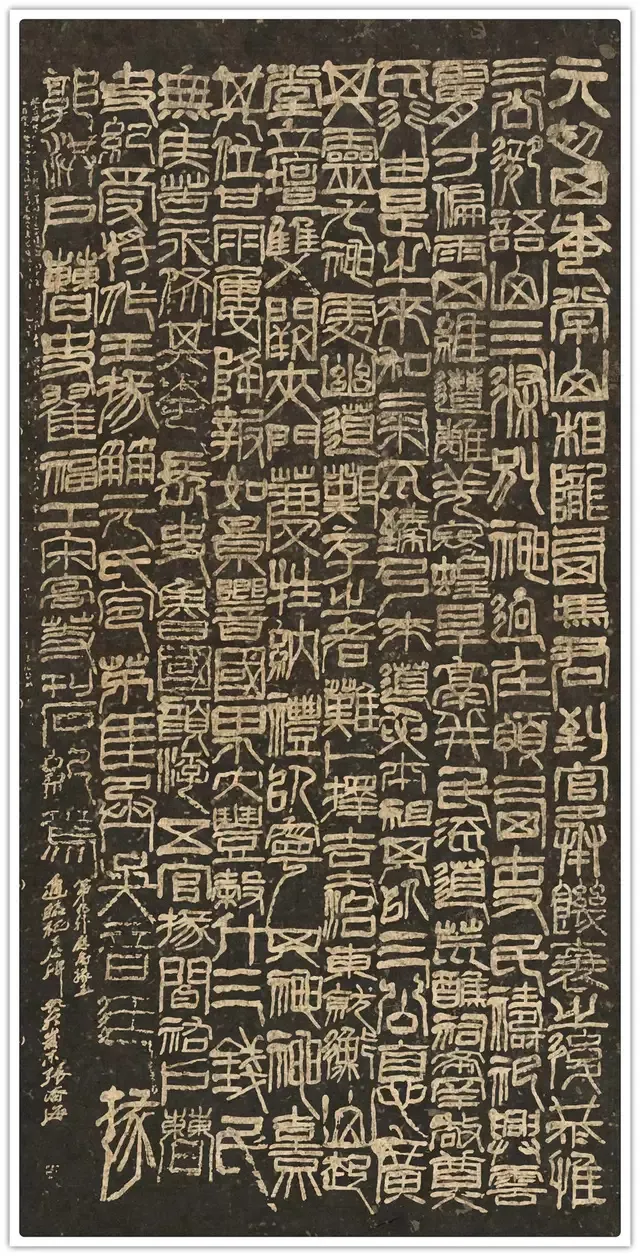 元初四年常山相隴西馮君到官承饑衰之後恭惟
三公御語山三條別神迥在領西吏民禱祀興雲
膚寸偏雨四維遭離羌寇蝗旱鬲并民流道荒醮祠希罕敬奠
不行由是之來和氣不臻乃來道要本祖其以三公德廣
其靈尤神處幽道艱存之者難卜擇吉治東就衡山起
堂立壇雙闕夾門薦牲納禮以寧其神神熹
其位甘雨屢降報如景響國界大豐穀斗三錢民
無疾苦永保其年長史魯國顏浮五官掾閻祐戶曹
史紀受將作王掾笧元氏令茅匡丞吳音廷掾
郭洪戶曹史翟福工宋高等刊石紀焉